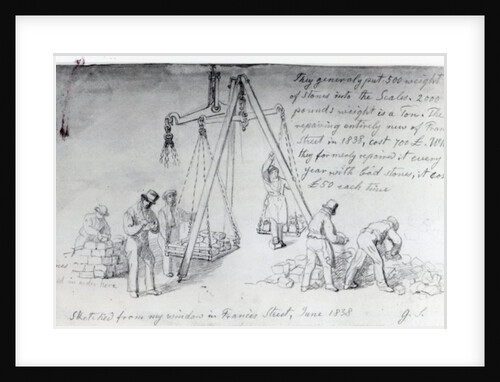 They generaly put 500 weight
of stones into the Scales. 2000
pounds weight is a Ton. The
repairing entirely new of Fran
Street in 1838, cost 700 £. Wh
they formerly repaired it every
year with bad stones, it cos
£50 each time
Sketched from my window in Francis Street, June 1838
G. S.